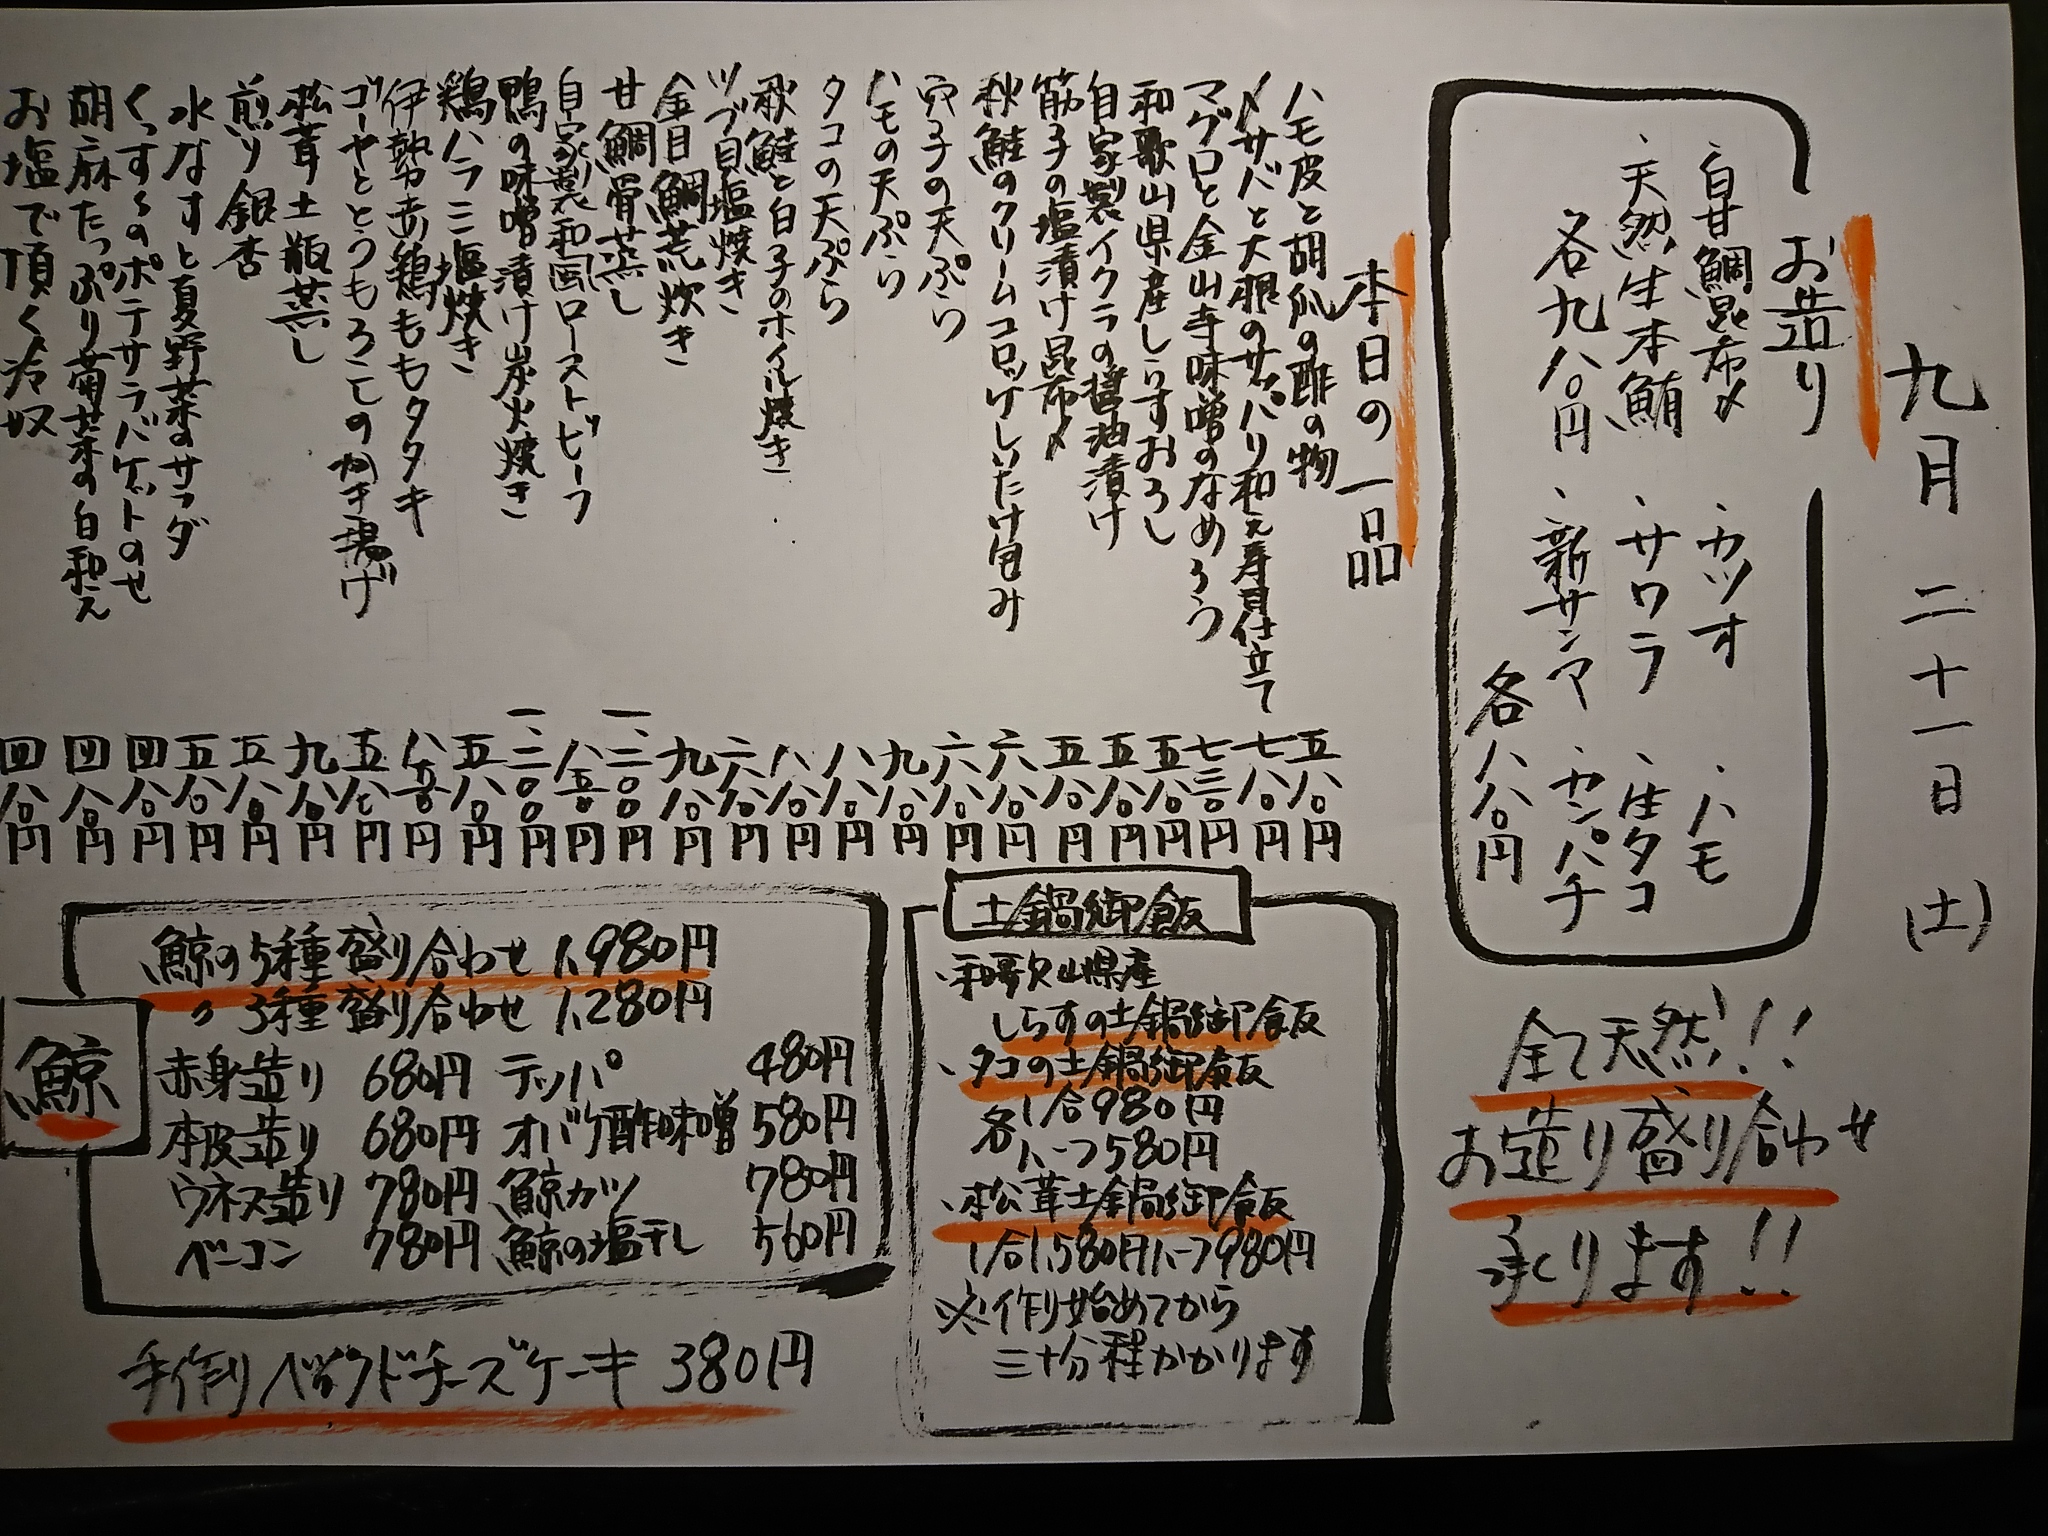 九月二十一日(土)
お造り
・白甘鯛昆布〆
・カツオ
・ハモ
・天然生本鮪
・サワラ
・生タコ
各九八〇円
・新サンマ
・カンパチ
各八八〇円
全て天然!!
お造り盛り合わせ
承ります!!
本日の一品
ハモ皮と胡瓜の酢の物 五八〇円
〆サバと大根のサッパリ和え寿司仕立て 七八〇円
マグロと金山寺味噌のなめろう 七三〇円
和歌山県産しらすおろし 五八〇円
自家製イクラの醤油漬け 五八〇円
筋子の塩漬け昆布〆 五八〇円
秋鮭のクリームコロッケしいたけ包み 六八〇円
穴子の天ぷら 六八〇円
ハモの天ぷら 九八〇円
タコの天ぷら 八八〇円
秋鮭と白子のホイル焼き 八八〇円
ツブ貝塩焼き 六八〇円
金目鯛荒炊き 九八〇円
甘鯛骨蒸し 一、二〇〇円
自家製和風ローストビーフ 八五〇円
鴨の味噌漬け炭火焼き 一、二〇〇円
鶏ハラミ塩焼き 五八〇円
伊勢赤鶏ももタタキ 八五〇円
ゴーヤととうもろこしのかき揚げ 五八〇円
松茸土瓶蒸し 九八〇円
煎り銀杏 五八〇円
水なすと夏野菜のサラダ 五八〇円
くっすんのポテサラバケットのせ 四八〇円
胡麻たっぷり菊菜の白和え 四八〇円
お塩で頂く冷奴 四八〇円
土鍋御飯
・和歌山県産
しらすの土鍋御飯
・タコの土鍋御飯
各1合980円
ハーフ580円
・松茸土鍋御飯
1合1,580円ハーフ980円
※作り始めてから
三十分程かかります
鯨
鯨の5種盛り合わせ 1,980円
〃 3種盛り合わせ 1,280円
赤身造り 680円 テッパ 480円
本皮造り 680円 オバケ酢味噌 580円
ウネス造り 780円 鯨カツ 780円
ベーコン 780円 鯨の塩干し 560円
手作りベイクドチーズケーキ 380円